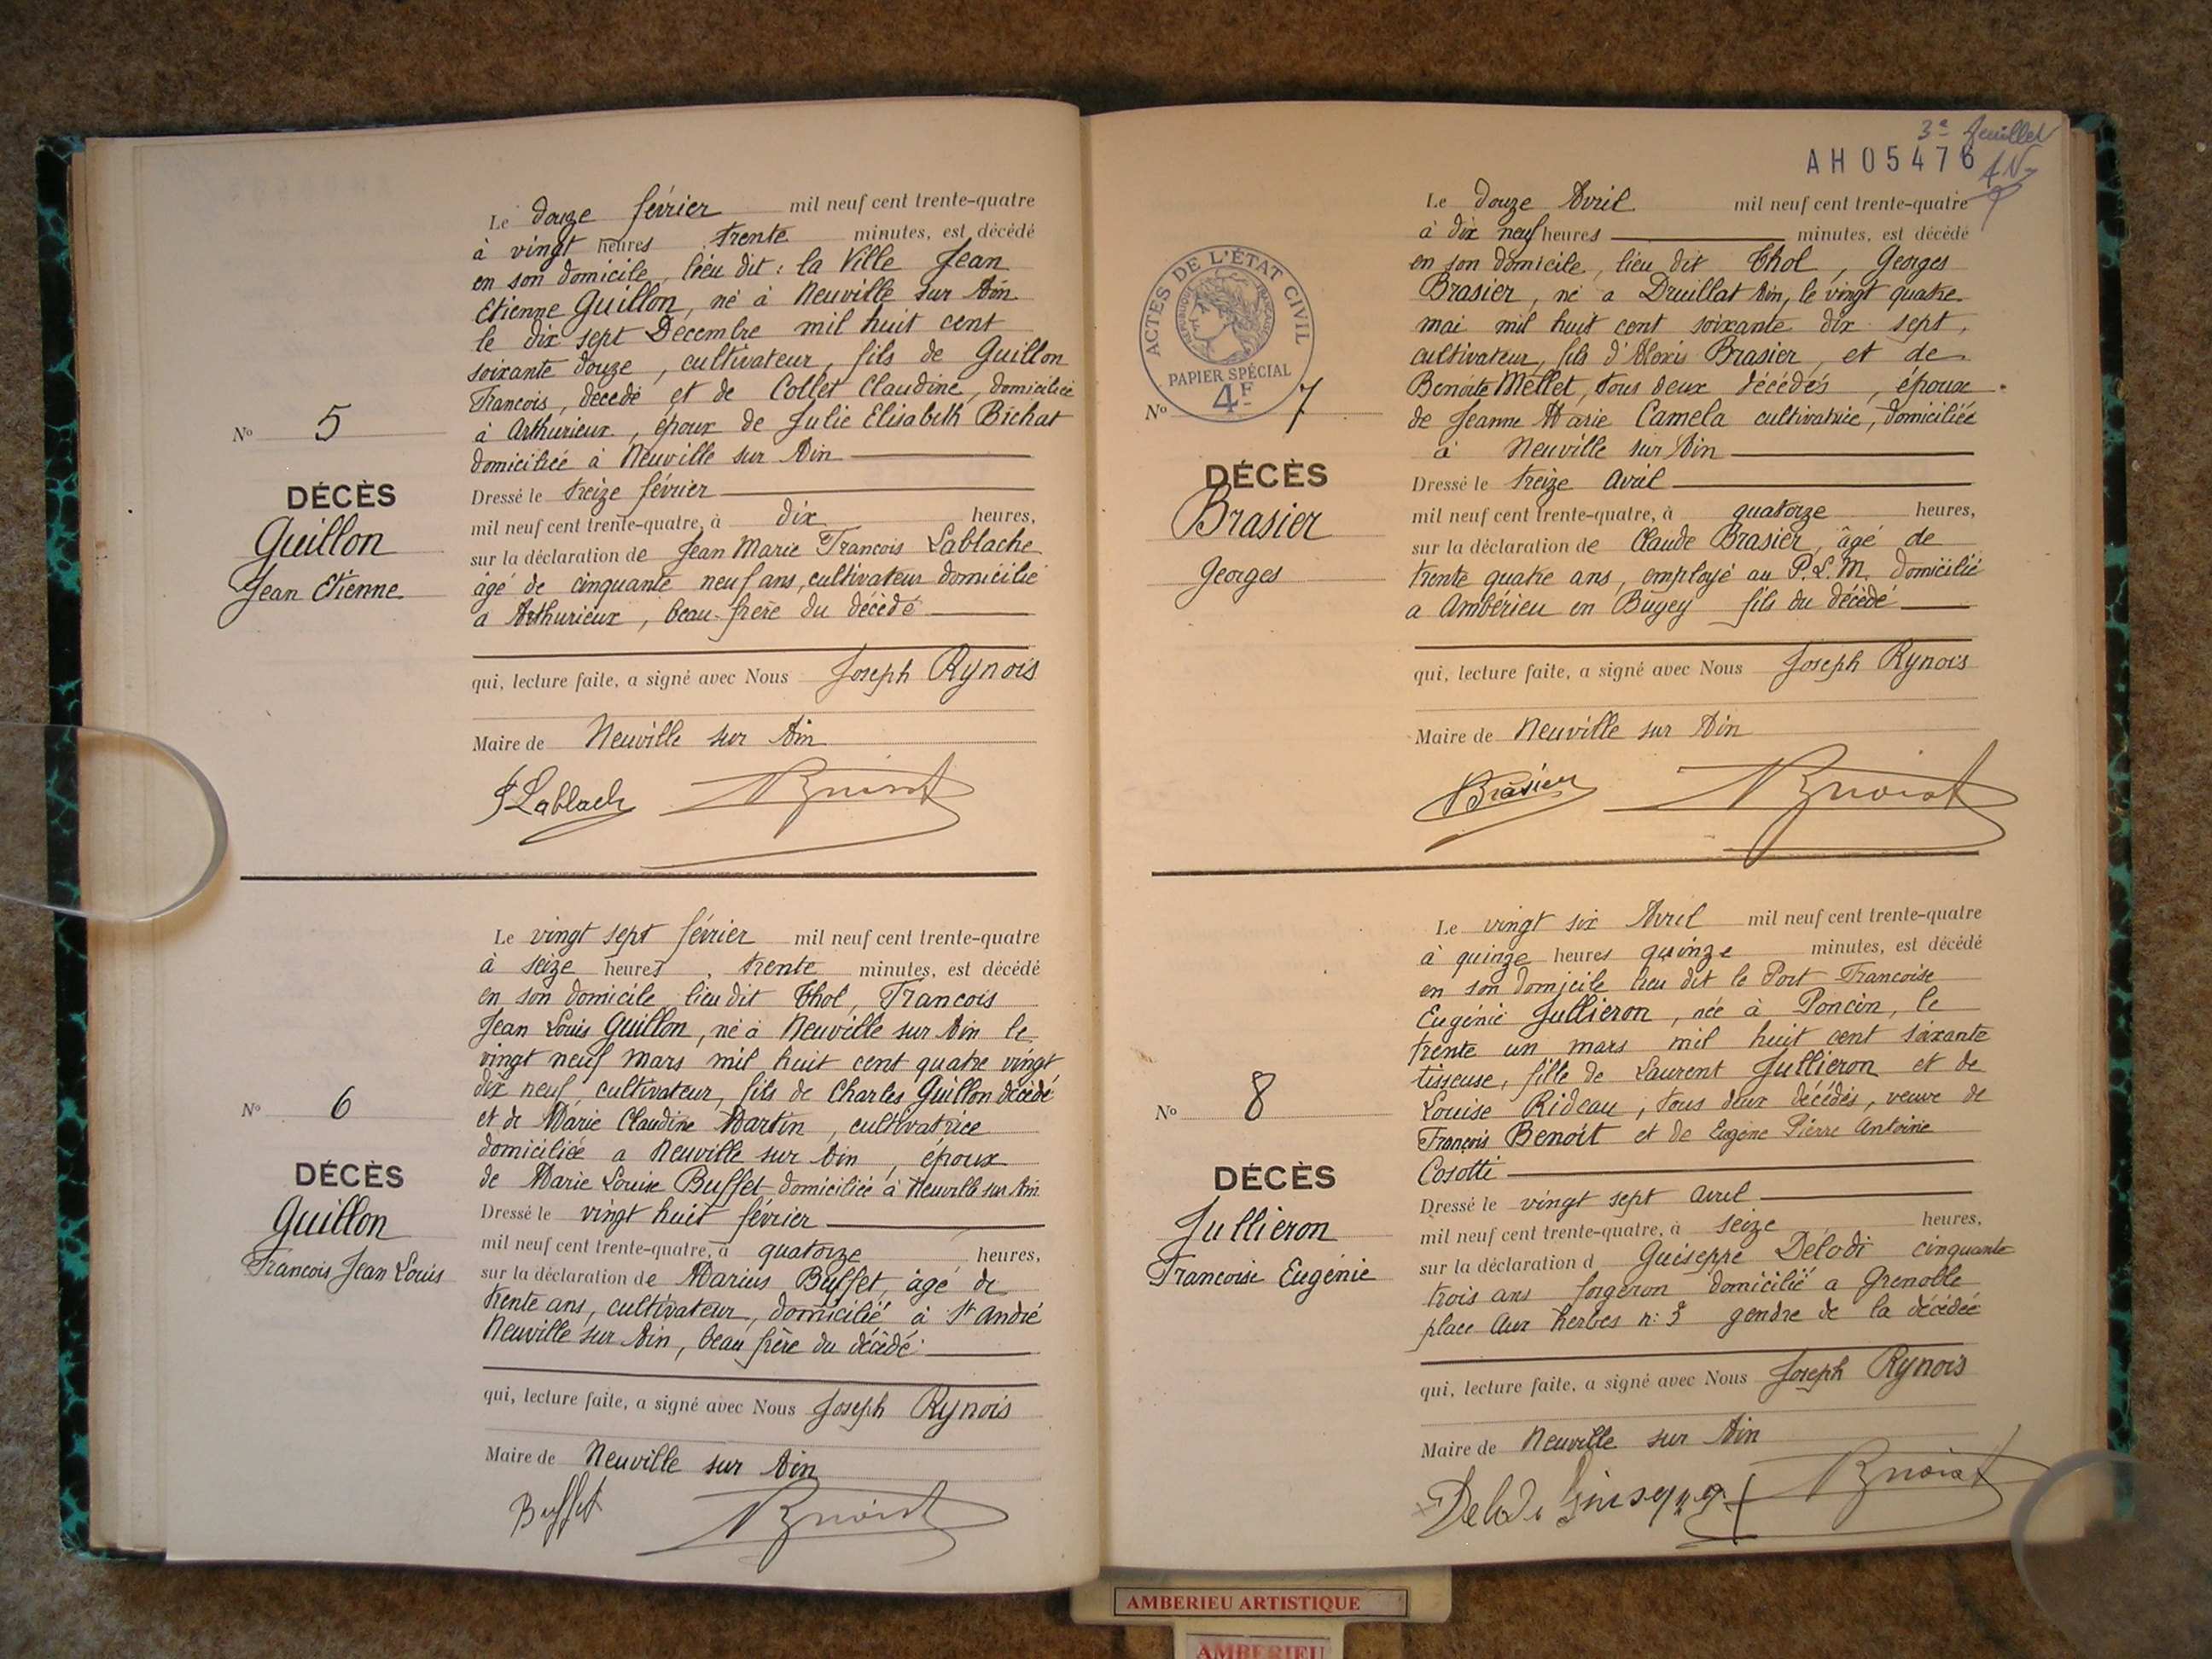 Le douze février mil neuf cent trente-quatre
à vingt heures trente minutes, est décédé
en son domicile, lieu dit : la Ville Jean
Etienne Guillon, né à Neuville sur Ain
le dix sept Decembre mil huit cent
soixante douze, cultivateur, fils de Guillon
Francois, décedé et de Collet Claudine, domiciliée
à Arthurieux, époux de Julie Elisabeth Bichat
domiciliée à Neuville sur Ain
Nº 5
DÉCÈS
Guillon
Jean Etienne
Dressé le treize février
mil neuf cent trente-quatre, à dix heures,
sur la déclaration de Jean Marie Francois Lablache
âgé de cinquante neuf ans, cultivateur domicilié
a Arthurieux, beau-frère du décédé
qui, lecture faite, a signé avec Nous Joseph Rynois
Maire de Neuville sur Ain
J Lablach
Le vingt sept février mil neuf cent trente-quatre
à seize heures, trente minutes, est décédé
en son domicile, lieu dit Thol, Francois
Jean Louis Guillon, né à Neuville sur Ain le
vingt neuf mars mil huit cent quatre vingt
dix neuf, cultivateur, fils de Charles Guillon décédé
et de Marie Claudine Martin, cultivatrice
domiciliée a Neuville sur Ain, époux
de Marie Louise Buffet domiciliée à Neuville sur Ain
Nº 6
DÉCÈS
Guillon
Francois Jean Louis
Dressé le vingt huit février
mil neuf cent trente-quatre, à quatorze heures,
sur la déclaration de Marius Buffet, âgé de
trente ans, cultivateur, domicilié à St André
Neuville sur Ain, beau frère du décédé
qui, lecture faite, a signé avec Nous Joseph Rynois
Maire de Neuville sur Ain
Buffet
3e feuillet
AH05476
ACTES DE L'ÉTAT CIVIL
RÉPUBLIQUE FRANÇAISE
PAPIER SPÉCIAL
4F
Le douze Avril mil neuf cent trente-quatre
à dix neuf heures minutes, est décédé
en son domicile, lieu dit Thol, Georges
Brasier, né a Druillat Ain, le vingt quatre
mai mil huit cent soixante dix sept,
cultivateur, fils d'Alexis Brasier, et de
Benoite Mellet, tous deux décédés, époux
de Jeanne Marie Camela cultivatrice, domiciliée
à Neuville sur Ain
Nº 7
DÉCÈS
Brasier
Georges
Dressé le treize Avril
mil neuf cent trente-quatre, à quatorze heures,
sur la déclaration de Claude Brasier, âgé de
trente quatre ans, employé au P.L.M. domicilié
a Ambérieu en Bugey fils du décédé
qui, lecture faite, a signé avec Nous Joseph Rynois
Maire de Neuville sur Ain
Brasier
Le vingt six Avril mil neuf cent trente-quatre
à quinze heures quinze minutes, est décédé
en son domicile lieu dit le Port Francoise
Eugénie Jullieron, née à Poncin, le
trente un mars mil huit cent soixante
tisseuse, fille de Laurent Jullieron et de
Louise Rideau, tous deux décédés, veuve de
François Benoît et de Eugène Pierre Antoine
Cosotti
Nº 8
DÉCÈS
Jullieron
Francoise Eugénie
Dressé le vingt sept avril
mil neuf cent trente-quatre, à seize heures,
sur la déclaration d Guéseppé Délodi cinquante
trois ans forgeron domicilié a Grenoble
place Aux herbes n: 3 gendre de la décédée
qui, lecture faite, a signé avec Nous Joseph Rynois
Maire de Neuville sur Ain
AMBERIEU ARTISTIQUE
AMBERIEU